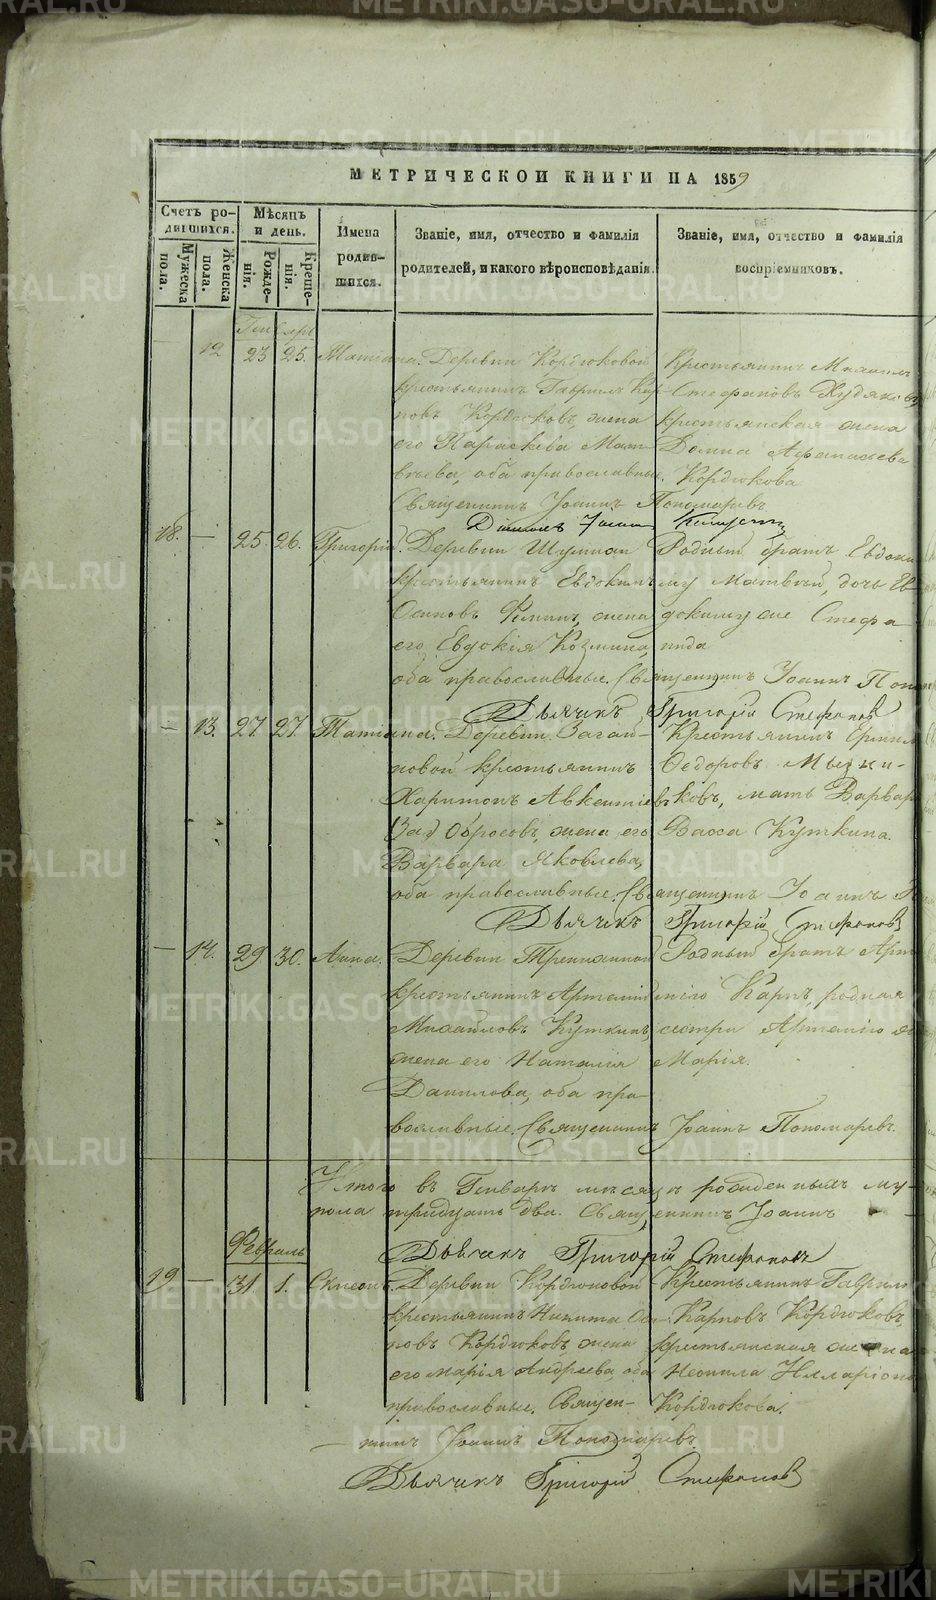 МЕТРИЧЕСКОЙ КНИГИ НА 1859
Счетъ родившихся.
Мѣсяцъ и день.
Имена родившихся.
Званіе, имя, отчество и фамилія родителей, и какого вѣроисповѣданія.
Званіе, имя, отчество и фамилія воспріемниковъ.
Мужеска пола.
Женска пола.
Рожденія.
Крещенія.
Генварь
12 23 25. Татіана. Деревни Кордюковой Крестьянинъ Михаилъ
крестьянинъ Гавриилъ Кар- Стефановъ Худяковъ,
повъ Кордюковъ, жена крестьянская жена
его Параскева Мат- Домна Афанасьева
вѣева, оба православные. Кордюкова
Священникъ Іоаннъ Пономаревъ
18. — 25 26. Григорій. Деревни Родный братъ Евдоки
крестьянинъ Евдокимъ му Матвѣй, дочь Ев-
Осиповъ жена докиму же Стефа-
его Евдокія Козмина, нида
оба православные. Священникъ Іоаннъ Поно
Дьячекъ Григорій Стефановъ
— 13. 27 27 Татіана. Деревни Загай- Крестьянинъ
новой крестьянинъ Федоровъ
Харитонъ Авксентіевъ ковъ, мать Варвары
Обросовъ, жена его Васса Куткина.
Варвара Яковлева,
оба православные. Священникъ Іоаннъ П
Дьячекъ Григорій Стефановъ
— 14. 29 30. Анна. Деревни Родный братъ Арте
крестьянинъ Артемій мію Карпъ, родная
Михайловъ Куткинъ, сестра Артемію
жена его Наталія Марія.
Данилова, оба пра-
вославные. Священникъ Іоаннъ Пономаревъ.
Итого въ Генварѣ мѣсяцѣ рожденныхъ му-
пола тридцать два. Священникъ Іоаннъ
Дьячекъ Григорій Стефановъ
Февраль
19 — 31. 1. Деревни Кордюковой Крестьянинъ Гавриилъ
крестьянинъ Никита Карповъ Кордюковъ,
повъ Кордюковъ, жена крестьянская жена
его Марія Андреева, оба Неонила Илларіоно
православные. Священ- Кордюкова.
никъ Іоаннъ Пономаревъ.
Дьячекъ Григорій Стефановъ
METRIKI.GASO-URAL.RU